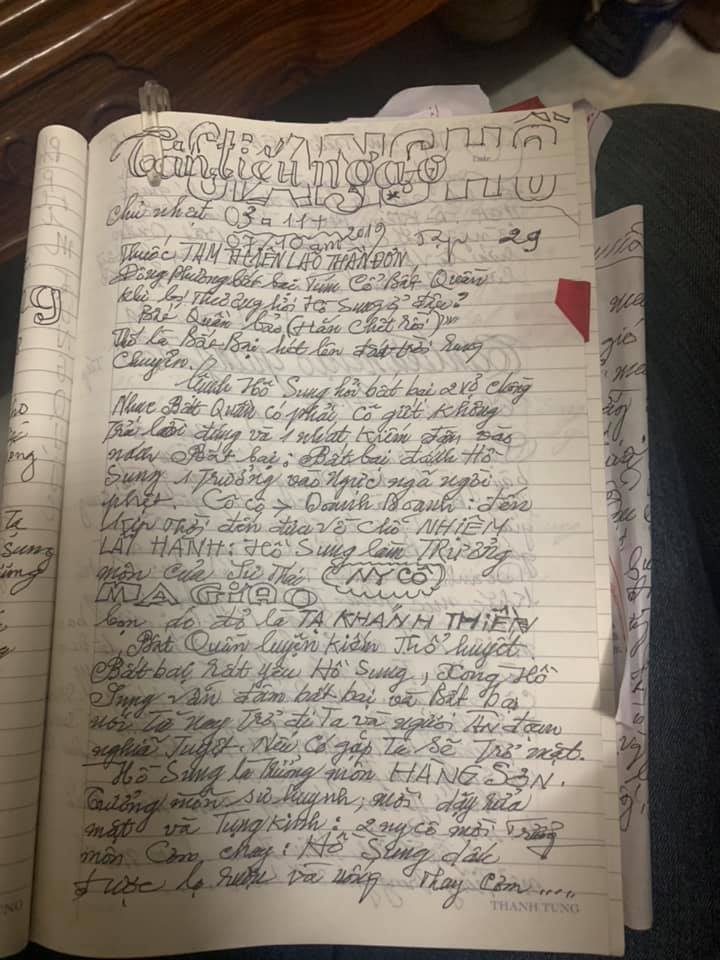 Tân tiếu ngạo GIANG HỒ
Chủ nhật 03-11+
07,10am 2019 Tập 29
Thuốc TAM HIỀN LÃO THẦN ĐƠN
Đông Phương bất bại Tụm Cổ Bất Quần
khi bị Thương hỏi Hồ Sung ở đâu?
Bất Quần bảo (Hắn Chết rồi)
Thế là Bất Bại hét lên đất trời rung
Chuyển.
Lệnh Hồ Sung hỏi bất bại 2 vợ chồng
Nhạc Bất Quần có phải cô giết không
Trả lời đúng và 1 nhát kiếm đâm vào
Bất bại; Bất bại đánh Hồ
Sung 1 Trưởng vào Ngực ngã ngồi
phệt. Có cọ → Doanh Doanh: đến
kịp thời đón đưa về chỗ NHIÊM
LÂT HÀNH: Hồ Sung làm TRƯỞNG
môn của Sư Thái (NY CÔ)
MA GIÁO
bọn đó đó là TẠ KHÁNH THIÊN
Bất Quần luyện kiếm Thổ huyết.
Bất bại rất yêu Hồ Sung, Xong Hồ
Sung vẫn đâm bất bại và Bất Bại
nói Từ nay Trở đi Ta và người ÂN đạm
nghĩa Tuyệt. Nếu Có gặp Ta Sẽ Trở mặt.
Hồ Sung là Trưởng môn HÀNG SƠN.
Trưởng môn sư huynh, mời dậy rửa
mặt và Tụng kinh: 2 ny cô mời Trưởng
môn Cơm chay: Hồ Sung
được lọ rượu và uông Thay Cơm.....
THANH TÙNG